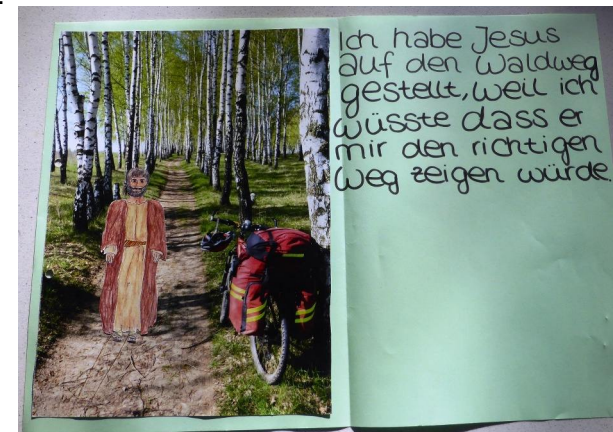 Ich habe Jesus
auf den Waldweg
gestellt, weil ich
wüsste dass er
mir den richtigen
Weg zeigen würde.